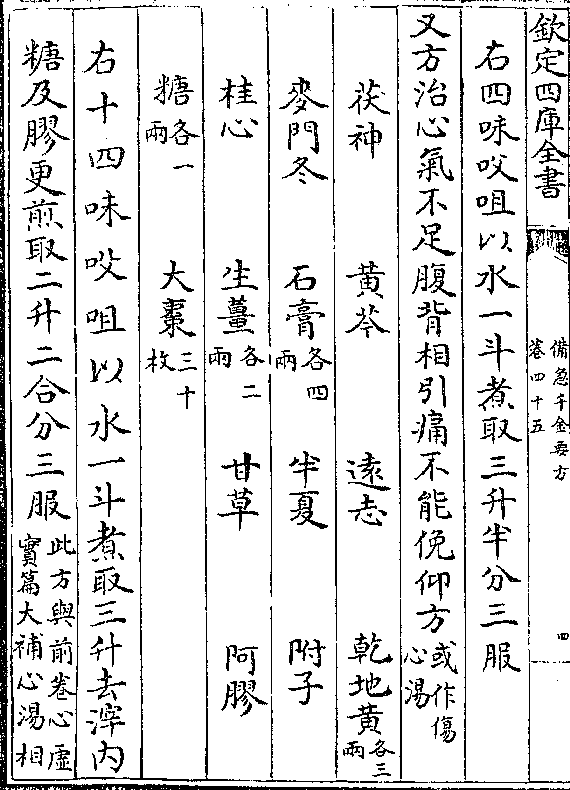 欽定四庫全書
備急千金要方
卷四十五
四
右四味㕮咀以水一斗煮取三升半分三服
又方治心氣不足腹背相引痛不能俛仰方或作傷心湯
茯神 黃芩 遠志 乾地黃各三兩
麥門冬 石膏各四兩 半夏 附子
桂心 生薑各二兩 甘草 阿膠
糖各一兩 大棗三十枚
右十四味㕮咀以水一斗煮取三升去滓內
糖及膠更煎取二升二合分三服此方與前卷心虛實篇大補心湯相